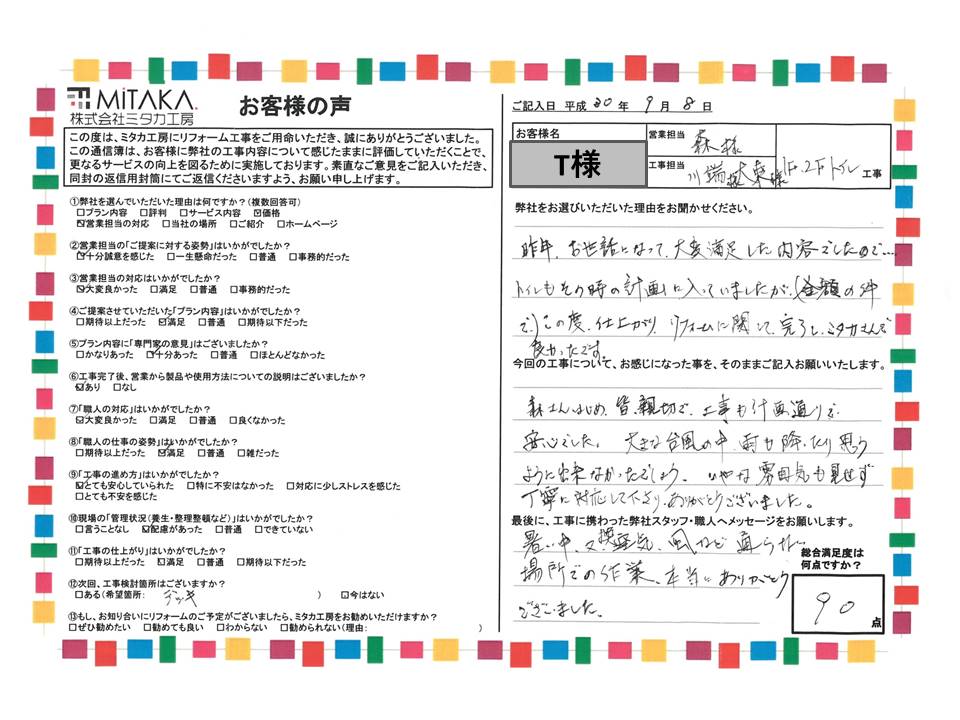 MITAKA.
株式会社ミタカ工房
お客様の声
この度は、ミタカ工房にリフォーム工事をご用命いただき、誠にありがとうございました。
この通信簿は、お客様に弊社の工事内容について感じたままに評価していただくことで、
更なるサービスの向上を図るために実施しております。素直なご意見をご記入いただき、
同封の返信用封筒にてご返信くださいますよう、お願い申し上げます。
①弊社を選んでいただいた理由は何ですか？（複数回答可）
□プラン内容 □評判 □サービス内容 ☑価格
☑営業担当の対応 □当社の場所 □ご紹介 □ホームページ
②営業担当の「ご提案に対する姿勢」はいかがでしたか？
☑十分誠意を感じた □一生懸命だった □普通 □事務的だった
③営業担当の対応はいかがでしたか？
☑大変良かった □満足 □普通 □事務的だった
④ご提案させていただいた「プラン内容」はいかがでしたか？
□期待以上だった ☑満足 □普通 □期待以下だった
⑤プラン内容に「専門家の意見」はございましたか？
□かなりあった ☑十分あった □普通 □ほとんどなかった
⑥工事完了後、営業から製品や使用方法についての説明はございましたか？
☑あり □なし
⑦「職人の対応」はいかがでしたか？
☑大変良かった □満足 □普通 □良くなかった
⑧「職人の仕事の姿勢」はいかがでしたか？
□期待以上だった ☑満足 □普通 □雑だった
⑨「工事の進め方」はいかがでしたか？
☑とても安心していられた □特に不安はなかった □対応に少しストレスを感じた
□とても不安を感じた
⑩現場の「管理状況（養生・整理整頓など）」はいかがでしたか？
□言うことなし ☑配慮があった □普通 □できていない
⑪「工事の仕上がり」はいかがでしたか？
□期待以上だった ☑満足 □普通 □期待以下だった
⑫次回、工事検討箇所はございますか？
□ある（希望箇所： デッキ ） ☑今はない
⑬もし、お知り合いにリフォームのご予定がございましたら、ミタカ工房をお勧めいただけますか？
□ぜひ勧めたい □勧めても良い □わからない □勧められない（理由： ）
ご記入日 平成 30 年 9 月 8 日
お客様名
T様
営業担当 森様
工事担当 川端様 大東様 1F.2Fトイレ 工事
弊社をお選びいただいた理由をお聞かせください。
昨年、お世話になって、大変満足した内容でしたので…
トイレもその時の計画に入っていましたが、(金額の件
で)この度、仕上がり、リフォームに関して、完了し、ミタカさんで
良かったです。
今回の工事について、お感じになった事を、そのままご記入お願いいたします。
森さんはじめ、皆親切で、工事も計画通りで
安心でした。大きな台風の中、雨も降ったり思う
ように出来なかったでしょう。いやな雰囲気も見せず
丁寧に対応して下さり、ありがとうございました。
最後に、工事に携わった弊社スタッフ・職人へメッセージをお願いします。
暑い中、又換気、風など通らない
場所での作業、本当にありがとう
ございました。
総合満足度は
何点ですか？
90
点